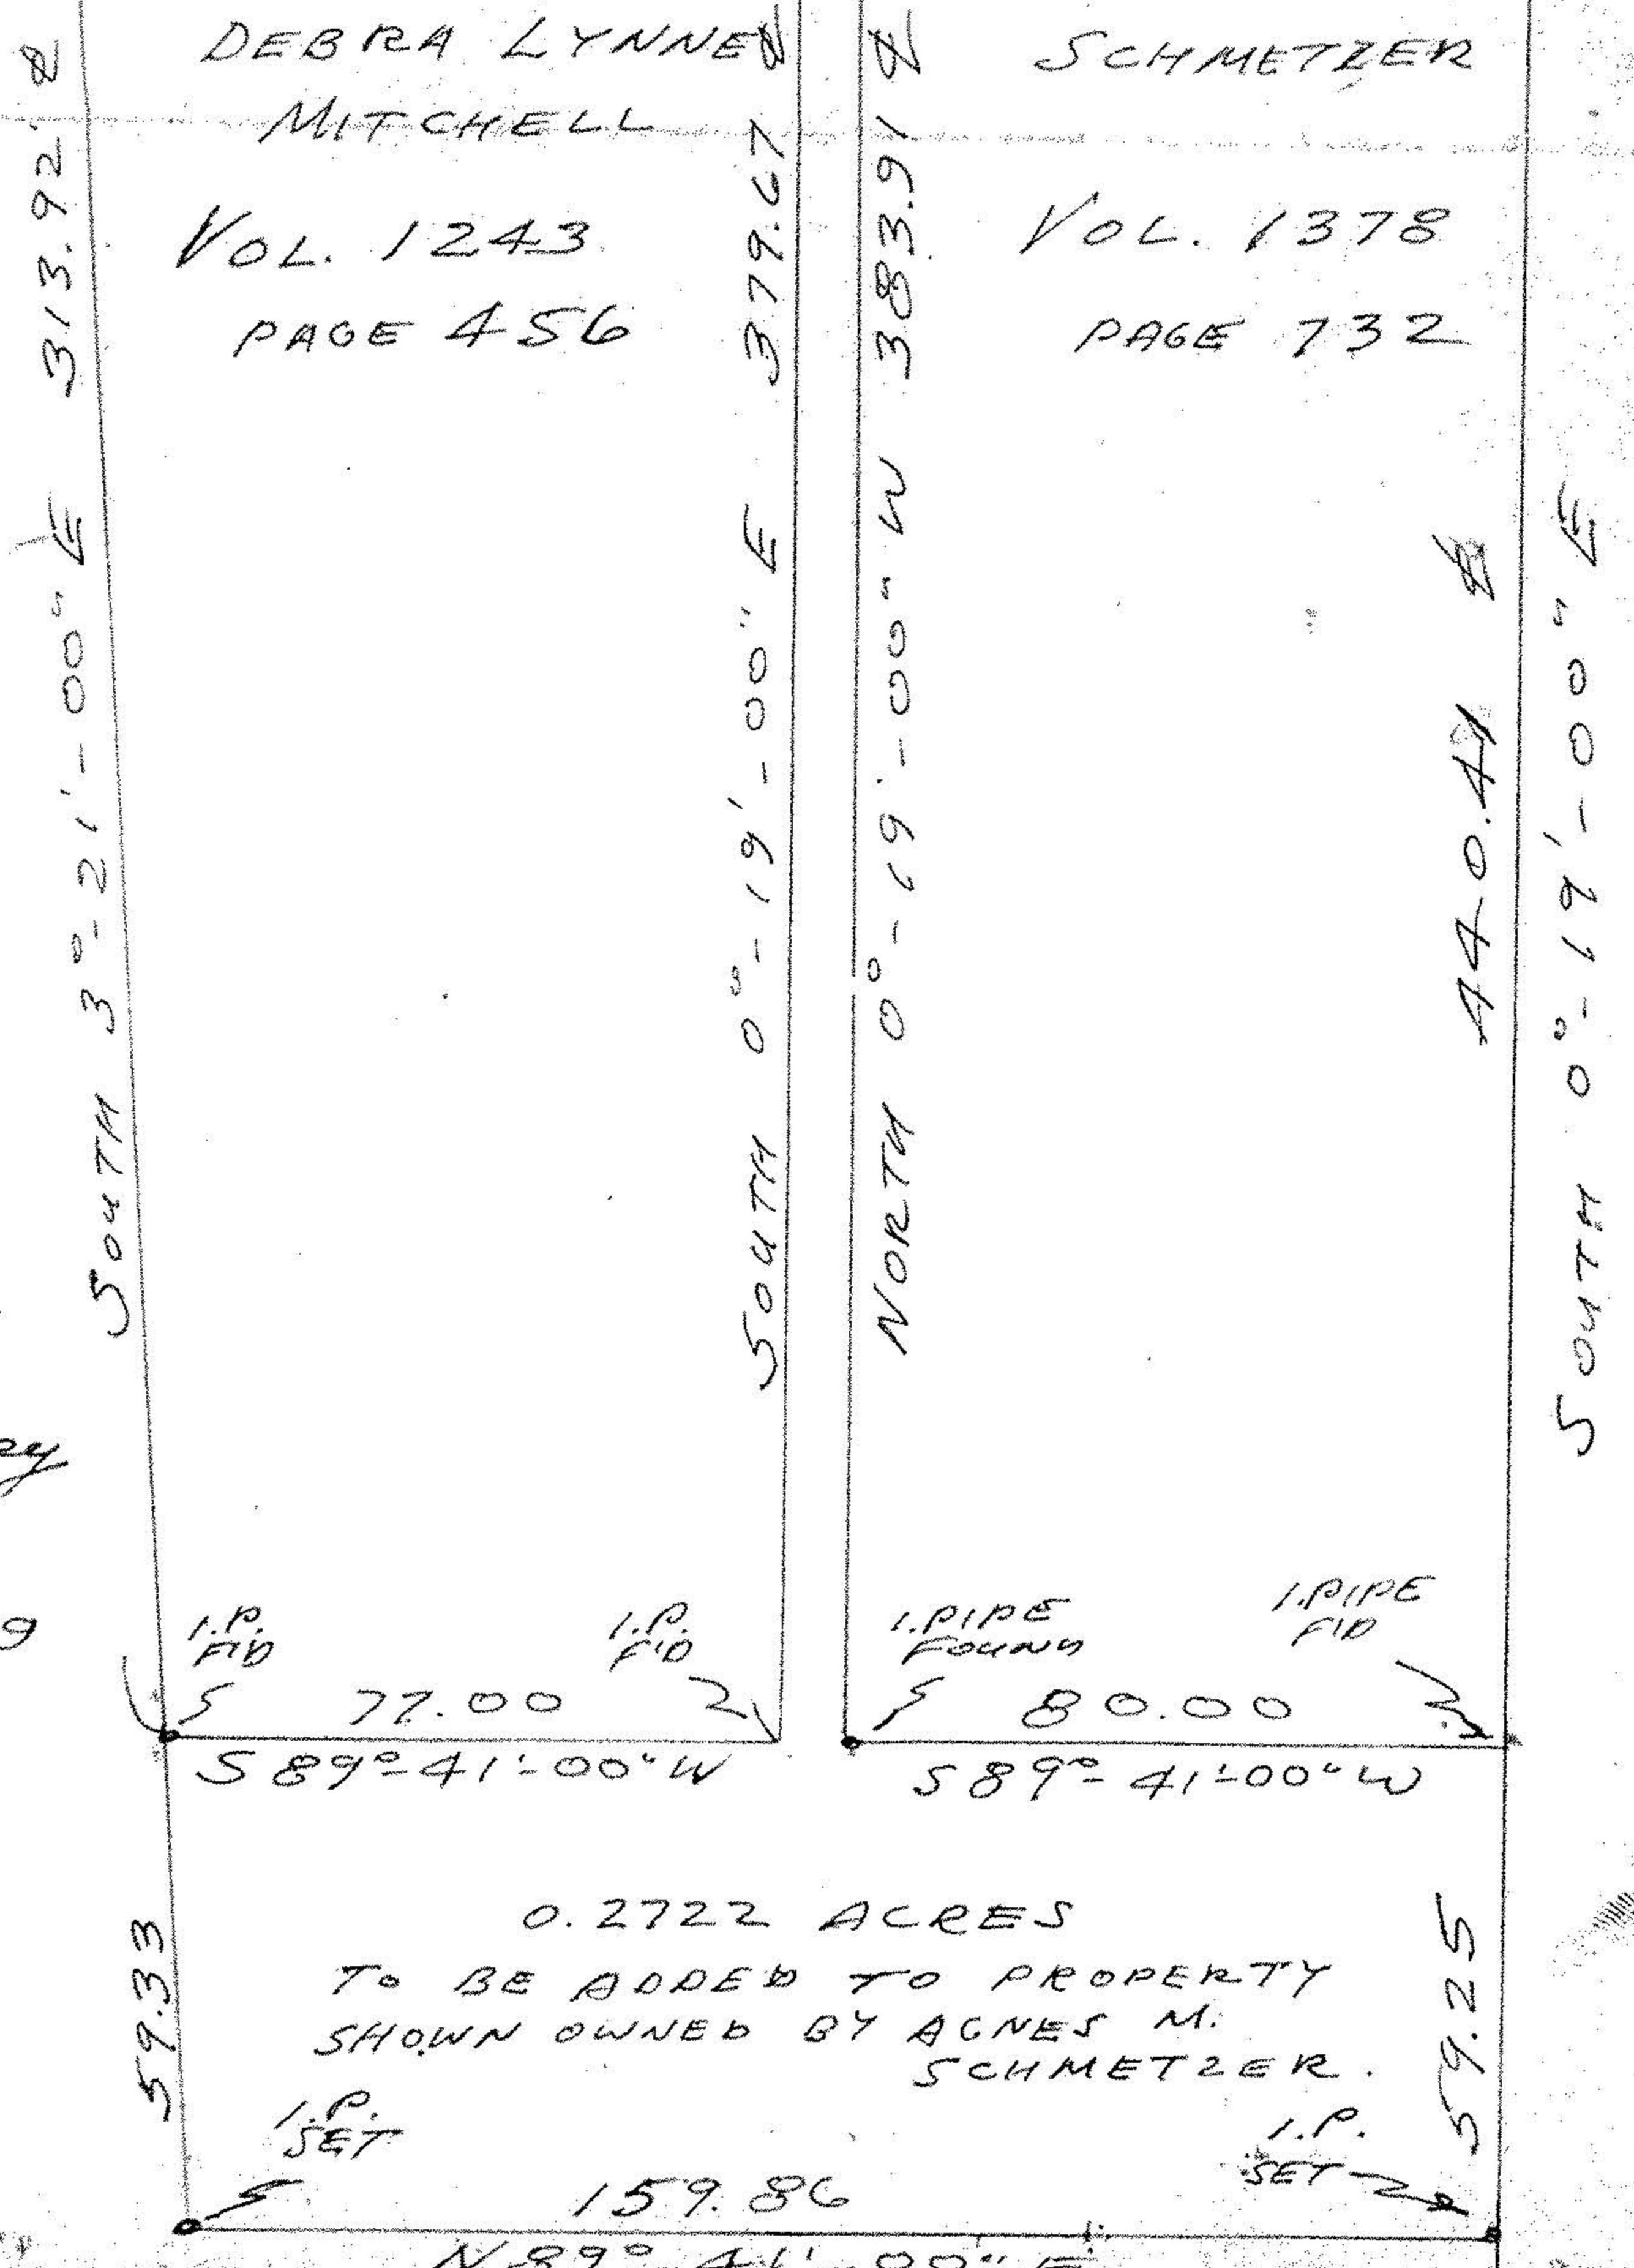 DEBRA LYNNE
MITCHELL
VOL. 1243
PAGE 456
SCHMETZER
VOL. 1378
PAGE 732
SOUTH 3°-21'-00" E 313.92'
SOUTH 0°-19'-00" E 379.67
NORTH 0°-19'-00" W 383.91
440.41
SOUTH 0°-19'-00" E
I.P.
F'D
I.P.
F'D
77.00
S 89°-41'-00" W
I.PIPE
FOUND
I.PIPE
F'D
80.00
S 89°-41'-00" W
0.2722 ACRES
TO BE ADDED TO PROPERTY
SHOWN OWNED BY AGNES M.
SCHMETZER.
59.33
59.25
I.P.
SET
I.P.
SET
159.86
N 89°-41'-00" E